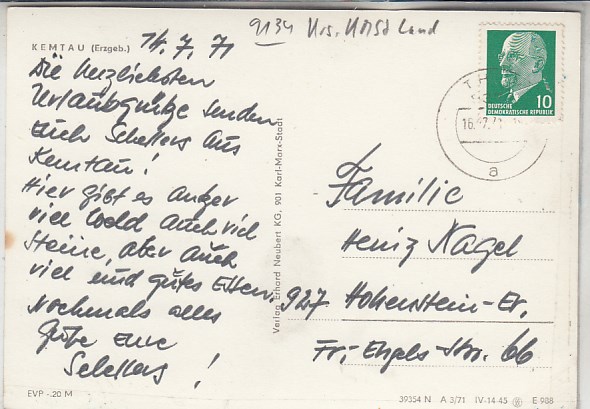 9134 Krs. KMSt Land
KEMTAU (Erzgeb.)
14.7.71
Die herzlichsten
Urlaubsgrüße senden
Euch Schellers aus
Kemtau!
Hier gibt es außer
viel Wald auch viel
Steine, aber auch
viel und gutes Essen.
Nochmals alles
Gute Eure
Schellers!
EVP -.20 M
Verlag Erhard Neubert KG, 901 Karl-Marx-Stadt
DEUTSCHE
DEMOKRATISCHE REPUBLIK
10
a
Familie
Heinz Nagel
927 Hohenstein-Er.
Fr.-Engels-Str. 66
39354 N A 3/71 IV-14-45 E 988